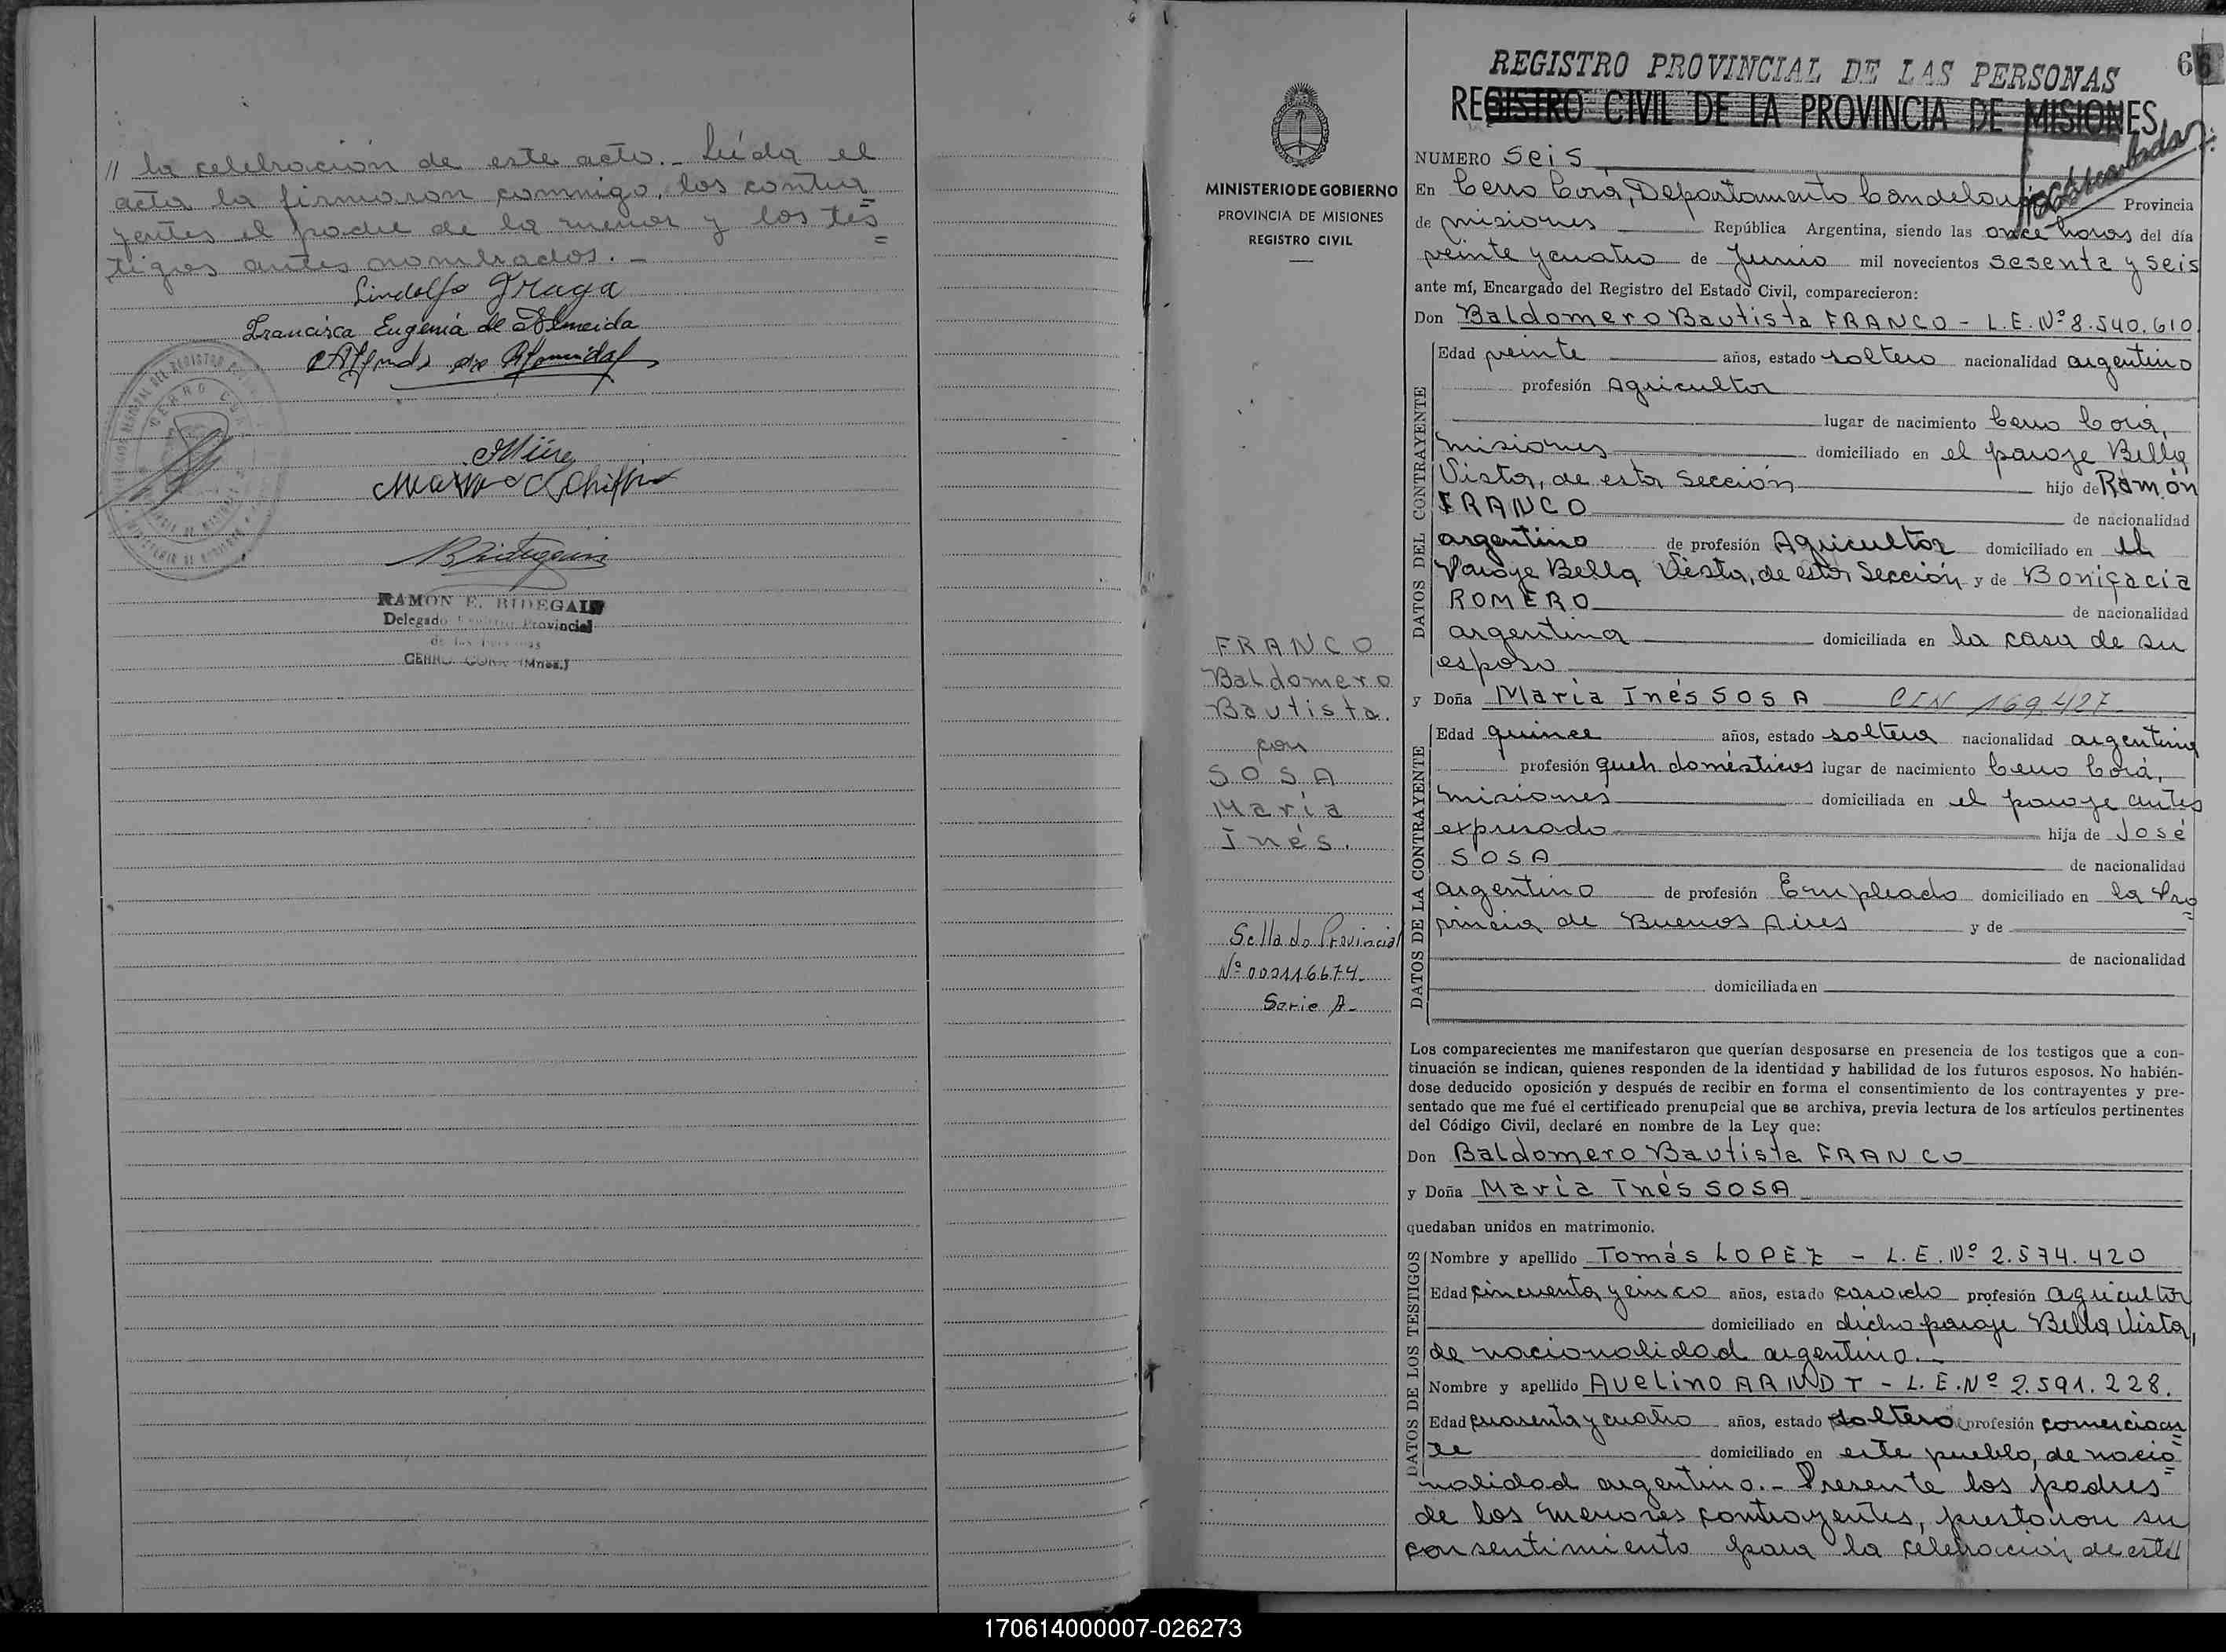 // la celebración de este acto.- Leída el
acta la firmaron conmigo, los contra=
yentes el padre de la menor y los tes=
tigos antes nombrados.-
Lindolfo Fraga
Francisca Eugenia de Almeida
RAMON E. BIDEGAIN
Delegado Registro Provincial
de las Personas
CERRO CORA (Mnes.)
MINISTERIO DE GOBIERNO
PROVINCIA DE MISIONES
REGISTRO CIVIL
FRANCO
Baldomero
Bautista.
con
SOSA
María
Inés.
Sellado Provincial
Nº 002116674.
Serie A-
REGISTRO PROVINCIAL DE LAS PERSONAS
REGISTRO CIVIL DE LA PROVINCIA DE MISIONES
NUMERO Seis
En Cerro Corá, Departamento Candelaria Provincia
de Misiones República Argentina, siendo las once horas del día
veinte y cuatro de Junio mil novecientos sesenta y seis
ante mí, Encargado del Registro del Estado Civil, comparecieron:
Don Baldomero Bautista FRANCO - L.E. Nº 8.540.610
DATOS DEL CONTRAYENTE
Edad veinte años, estado soltero nacionalidad argentino
profesión Agricultor
lugar de nacimiento Cerro Corá,
Misiones domiciliado en el paraje Bella
Vista, de esta Sección hijo de Ramón
FRANCO de nacionalidad
argentino de profesión Agricultor domiciliado en el
Paraje Bella Vista, de esta Sección y de Bonifacia
ROMERO de nacionalidad
argentina domiciliada en la casa de su
esposo
y Doña María Inés SOSA CIN 169.427
DATOS DE LA CONTRAYENTE
Edad quince años, estado soltera nacionalidad argentina
profesión queh. domésticos lugar de nacimiento Cerro Corá,
Misiones domiciliada en el paraje antes
expresado hija de José
SOSA de nacionalidad
argentino de profesión Empleado domiciliado en la Pro=
vincia de Buenos Aires y de
de nacionalidad
domiciliada en
Los comparecientes me manifestaron que querían desposarse en presencia de los testigos que a con-
tinuación se indican, quienes responden de la identidad y habilidad de los futuros esposos. No habién-
dose deducido oposición y después de recibir en forma el consentimiento de los contrayentes y pre-
sentado que me fué el certificado prenupcial que se archiva, previa lectura de los artículos pertinentes
del Código Civil, declaré en nombre de la Ley que:
Don Baldomero Bautista FRANCO
y Doña María Inés SOSA
quedaban unidos en matrimonio.
DATOS DE LOS TESTIGOS
Nombre y apellido Tomás LOPEZ - L.E. Nº 2.574.420
Edad cincuenta y cinco años, estado casado profesión agricultor
domiciliado en dicho paraje Bella Vista,
de nacionalidad argentino.-
Nombre y apellido Avelino ARNDT - L.E. Nº 2.591.228.
Edad cuarenta y cuatro años, estado soltero profesión comercian=
te domiciliado en este pueblo, de nacio=
nalidad argentino.- Presente los padres
de los menores contrayentes, prestaron su
consentimiento para la celebración de este//
170614000007-026273